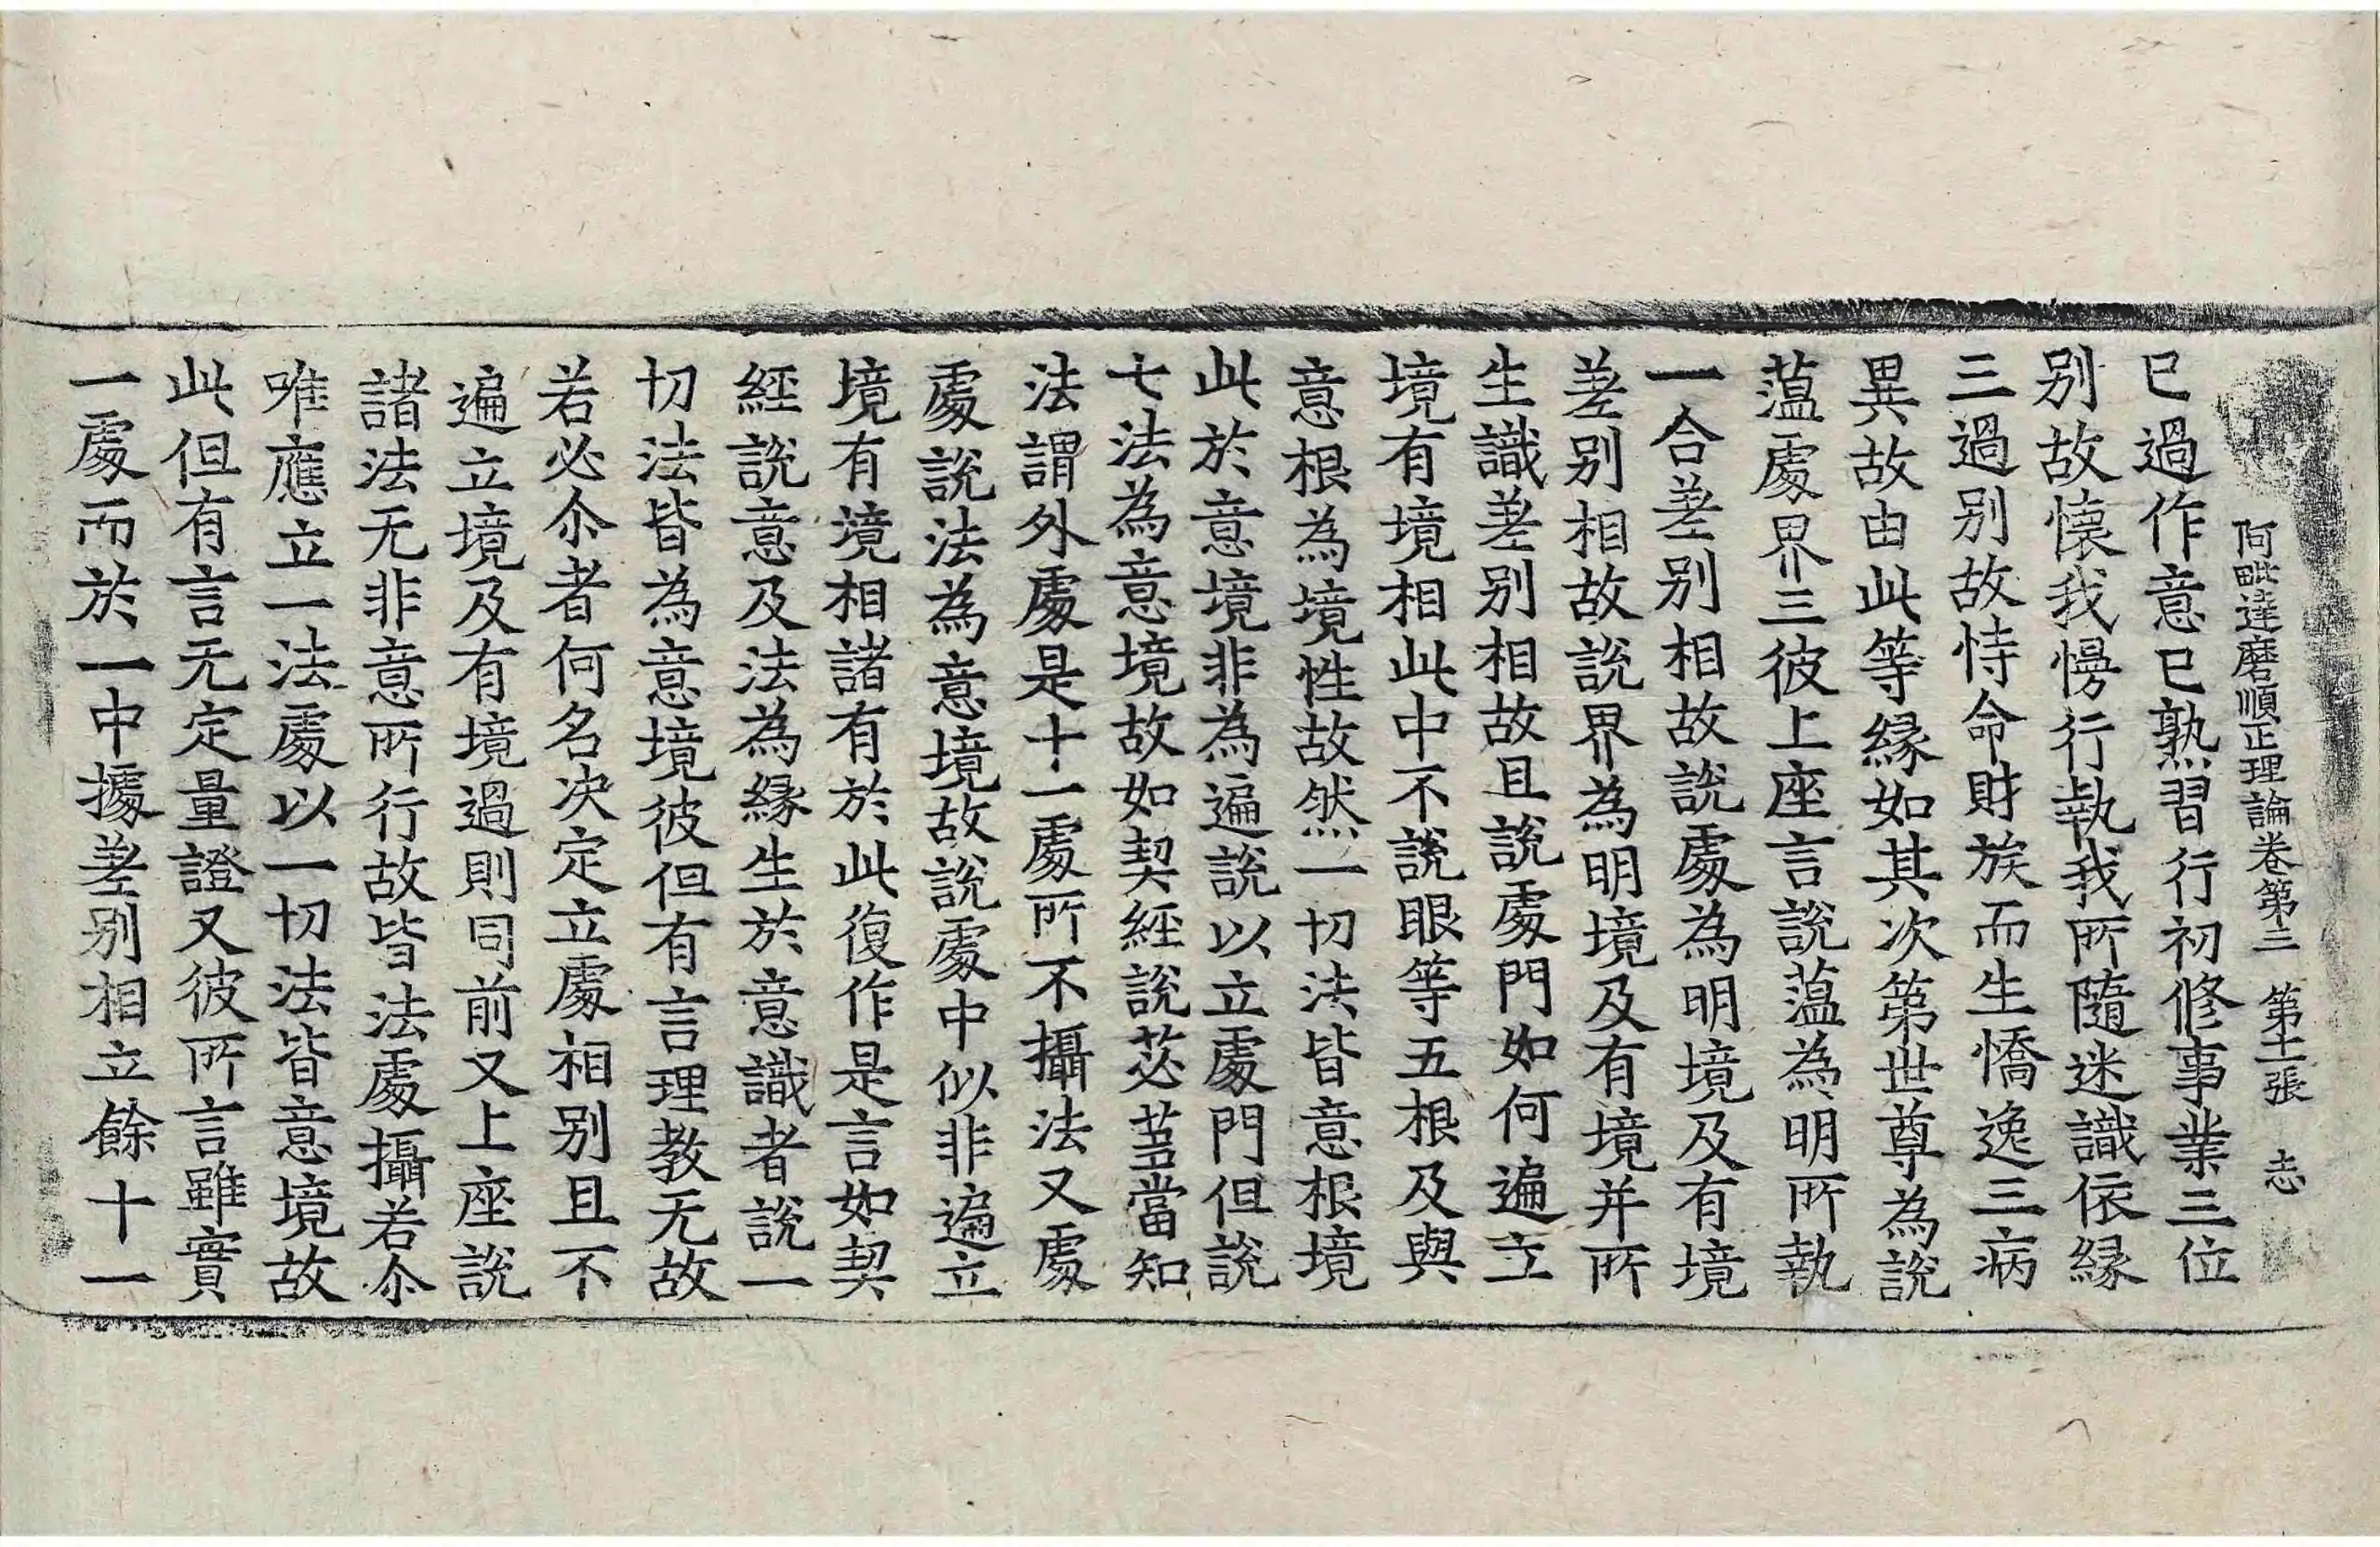 阿毗達磨順正理論卷第三　第十二張　志
已過作意已熟習行初修事業三位
别故懷我慢行執我所隨迷識依緣
三過别故恃命財族而生憍逸三病
異故由此等緣如其次第世尊為說
薀處界三彼上座言說薀為明所執
一合差别相故說處為明境及有境
差别相故說界為明境及有境并所
生識差别相故且說處門如何遍立
境有境相此中不說眼等五根及與
意根為境性故然一切法皆意根境
此於意境非為遍說以立處門但說
七法為意境故如契經說苾蒭當知
法謂外處是十一處所不攝法又處
處說法為意境故說處中似非遍立
境有境相諸有於此復作是言如契
經說意及法為緣生於意識者說一
切法皆為意境彼但有言理教无故
若必尒者何名决定立處相别且不
遍立境及有境過則同前又上座說
諸法无非意所行故皆法處攝若尒
唯應立一法處以一切法皆意境故
此但有言无定量證又彼所言雖實
一處而於一中據差别相立餘十一